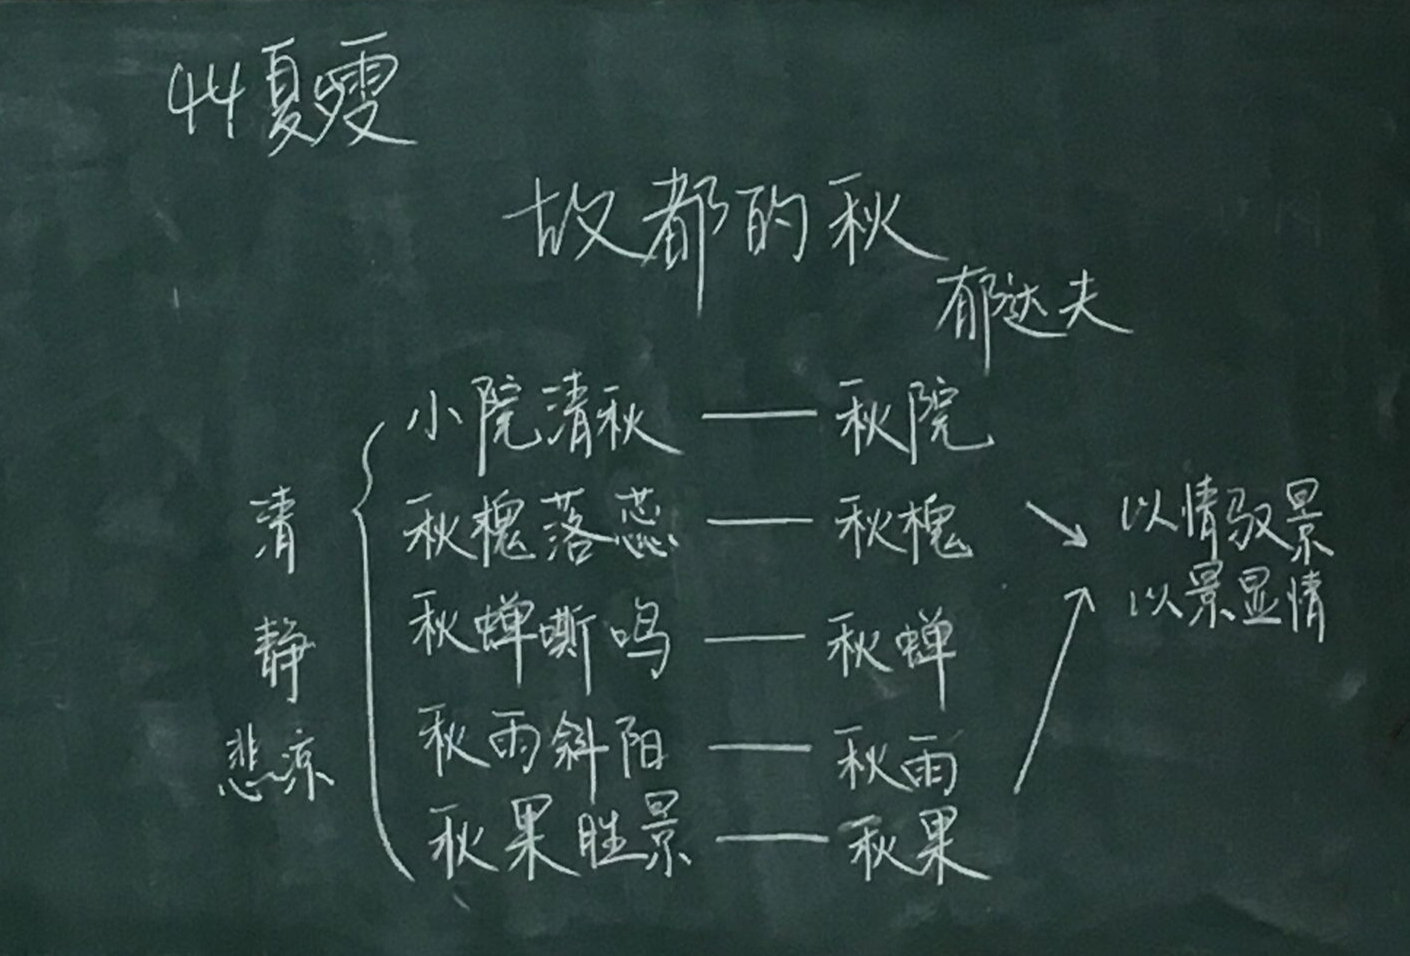 44夏雯
故都的秋
郁达夫
小院清秋 —— 秋院
秋槐落蕊 —— 秋槐
秋蝉嘶鸣 —— 秋蝉
秋雨斜阳 —— 秋雨
秋果胜景 —— 秋果
清
静
悲凉
以情驭景
以景显情